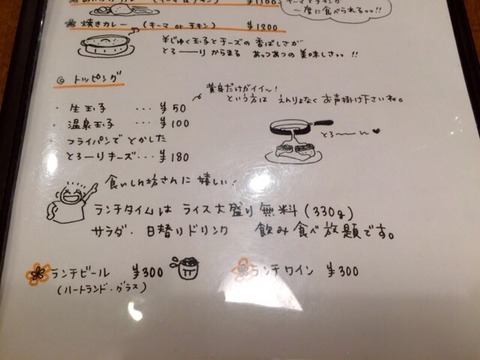 ¥1100
キーマとチキンが
一度に食べられる。。!!
焼きカレー (キーマ or チキン) ¥1200
半じゅく玉子とチーズの香ばしさが
とろ〜〜りからまる あっつあつの美味しさ。。!!
◎ トッピング
・生玉子 ・・・ ¥50
・温泉玉子 ・・・ ¥100
・フライパンでとかした
とろ〜りチーズ・・・¥180
黄身だけがイイ〜!
という方は えんりょなく お声掛け下さいね。
とろ〜〜ん♥
食いしん坊さんに嬉しい!
ランチタイムは ライス大盛り無料 (330g)
サラダ・日替りドリンク 飲み食べ放題です。
ランチビール ¥300
(ハートランド・グラス)
ランチワイン ¥300